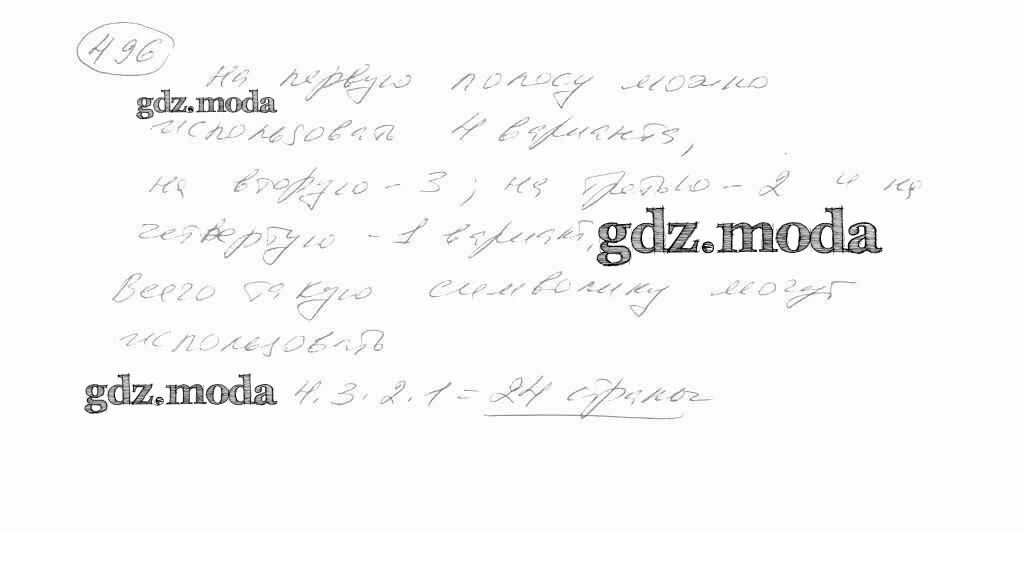 496
На первую полосу можно
gdz.moda
использовать 4 варианта,
на вторую - 3; на третью - 2 и на
четвертую - 1 вариант,
gdz.moda
Всего такую символику могут
использовать
gdz.moda 4.3.2.1 = 24 страны